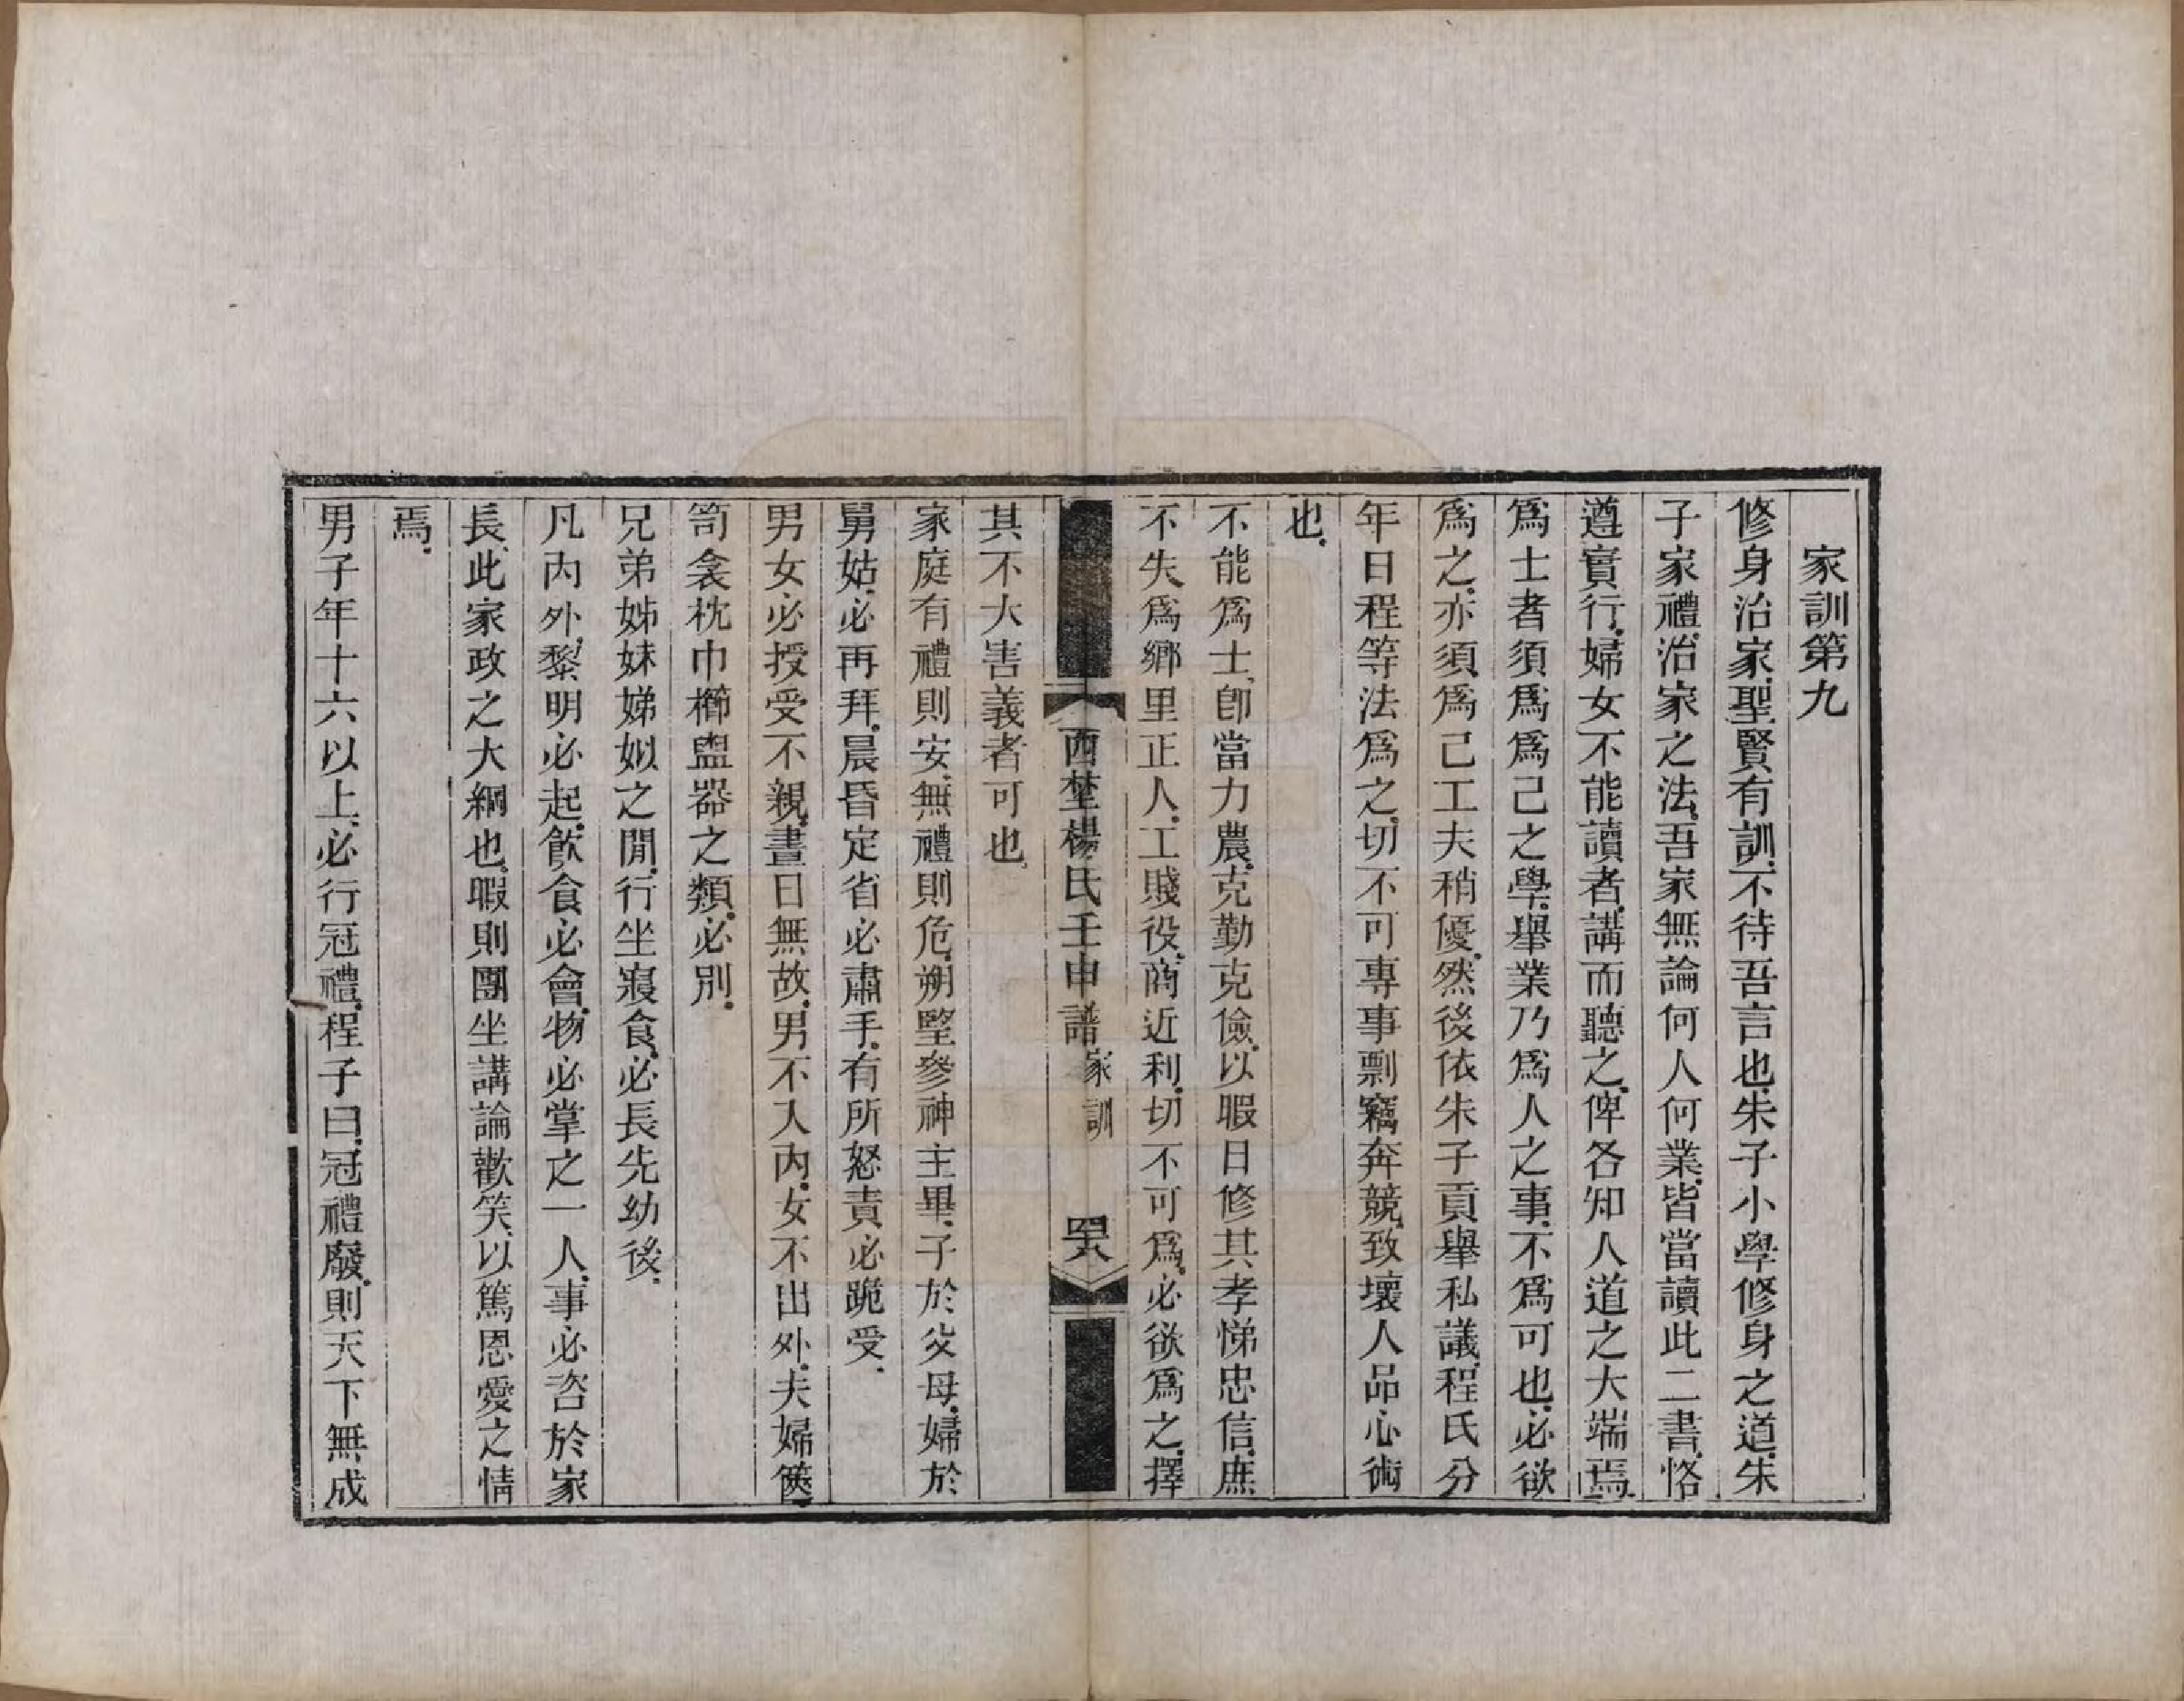 家訓第九
修身治家聖賢有訓不待吾言也朱子小學修身之道朱
子家禮治家之法吾家無論何人何業皆當讀此二書恪
遵實行婦女不能讀者講而聽之俾各知人道之大端焉
爲士者須爲爲己之學舉業乃爲人之事不爲可也必欲
爲之亦須爲己工夫稍優然後依朱子貢舉私議程氏分
年日程等法爲之切不可專事剽竊奔競致壞人品心術
也
不能爲士卽當力農克勤克儉以暇日修其孝悌忠信庶
不失爲鄉里正人工賤役商近利切不可爲必欲爲之擇
其不大害義者可也
西埜楊氏壬申譜 家訓 四六
家庭有禮則安無禮則危朔朢參神主畢子於父母婦於
舅姑必再拜晨昏定省必肅手有所怒責必跪受
男女必授受不親晝日無故男不入內女不出外夫婦篋
笥衾枕巾櫛盥器之類必別
兄弟姊妹娣姒之閒行坐寢食必長先幼後
凡內外黎明必起飮食必會物必掌之一人事必咨於家
長此家政之大綱也暇則團坐講論歡笑以篤恩愛之情
焉
男子年十六以上必行冠禮程子曰冠禮廢則天下無成